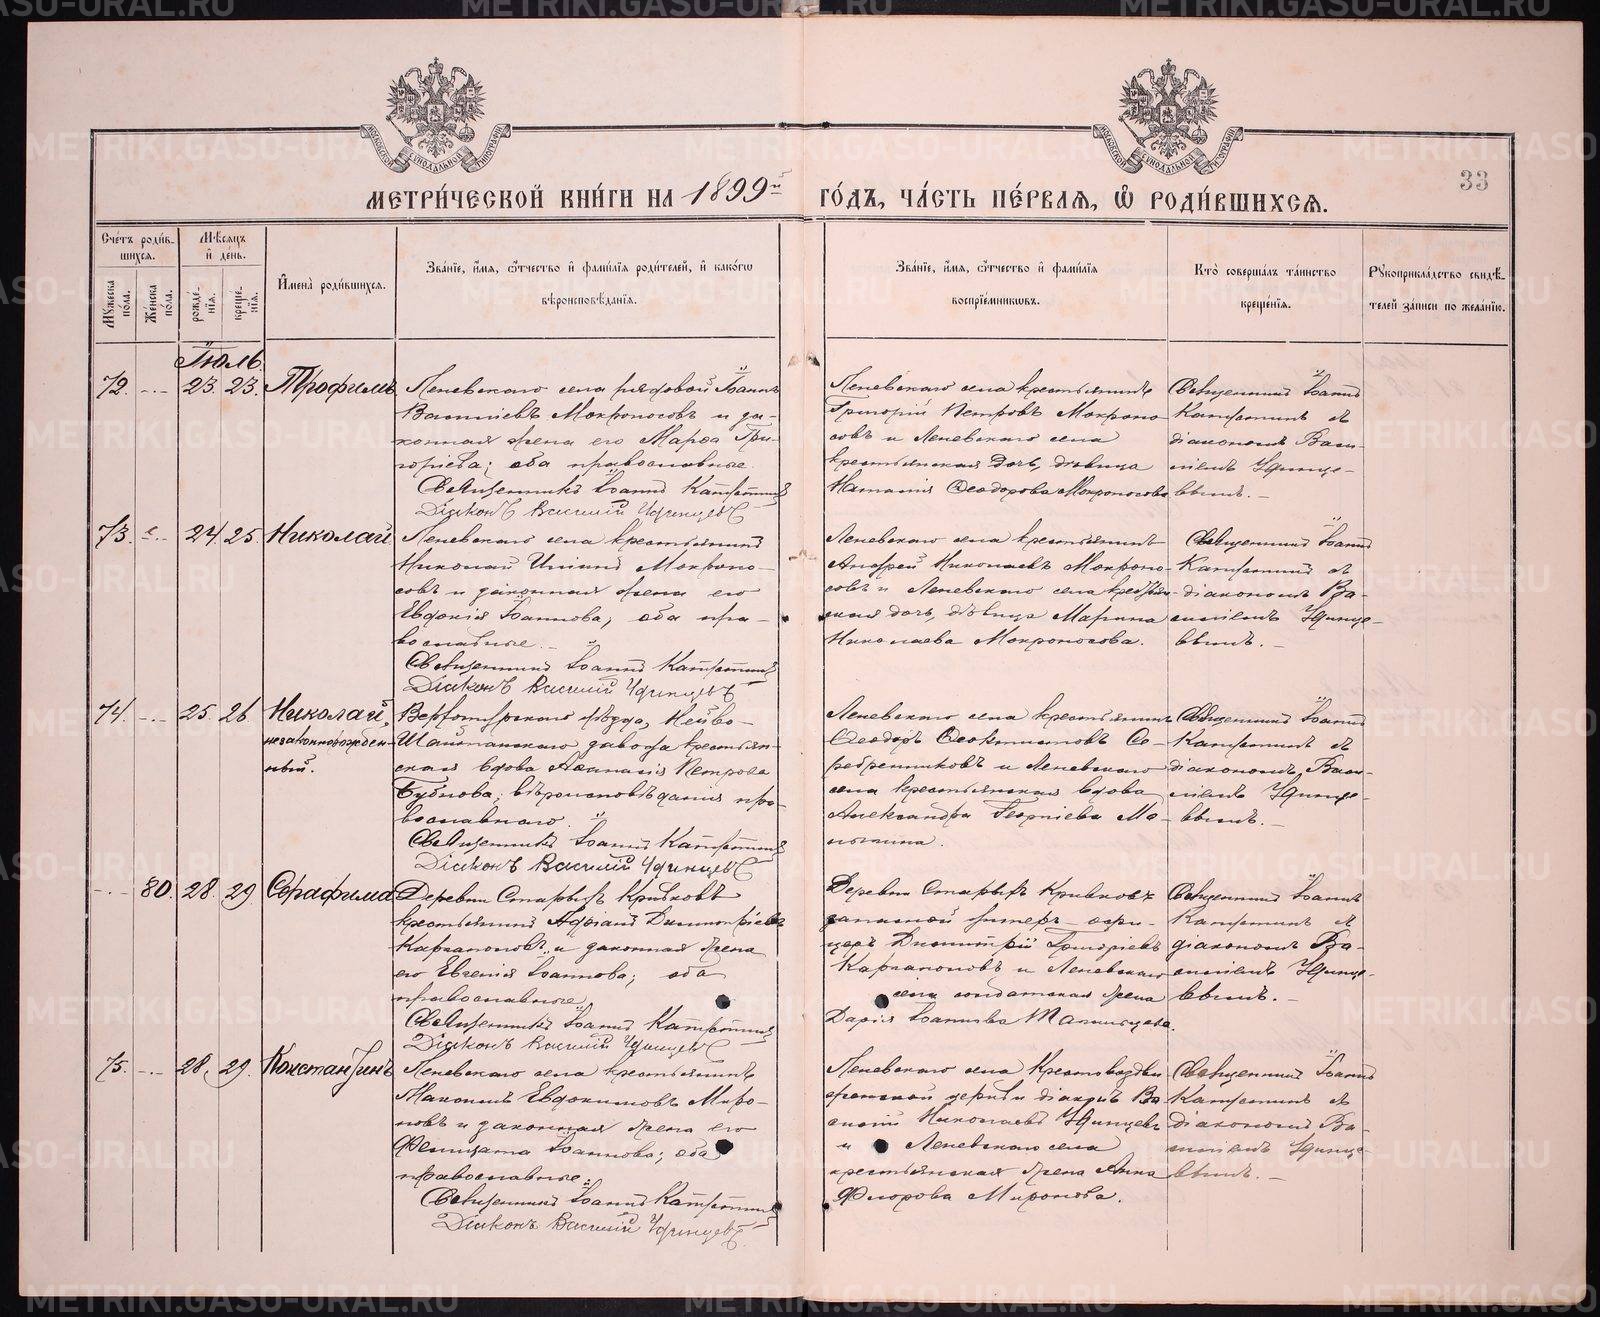 МЕТРИ́ЧЕСКОЙ КНИ́ГИ НА 1899й ГО́ДЪ, ЧА́СТЬ ПЕ́РВАѦ, Ѽ РОДИ́ВШИХСѦ.
33
Сче́тъ роди́в-
шихсѧ.
Мꙋжеска пола.
Же́нска по́ла.
Мѣ́сѧцъ
и҆ де́нь.
рожде́-
нїѧ.
креще-
нїѧ.
И҆мена̀ роди́вшихсѧ.
Зва́нїе, и҆́мѧ, ѻ҆́тчество и҆ фами́лїѧ роди́телей, и҆ како́гѡ
вѣроисповѣ́данїѧ.
Зва́нїе, и҆́мѧ, ѻ҆́тчество и҆ фами́лїѧ
воспрїе́мникѡвъ.
Кто̀ соверша́лъ та́инство
креще́нїѧ.
Рꙋкоприкла́дство свидѣ́-
телей за́писи по жела́нїю.
Іюль.
72. 23. 23. Трофимъ
Леневскаго села рядовой Іоаннъ
Васильевъ Мокроносовъ и за-
конная жена его Марѳа Гри-
горіева; оба православные.
Священникъ Іоаннъ
Діаконъ Василій Удинцевъ
Леневскаго села крестьянинъ
Григорій Петровъ Мокроно-
совъ и Леневскаго села
крестьянская дочь, дѣвица
Наталія Ѳеодорова Мокроносова
Священникъ Іоаннъ
съ
діакономъ Васи-
ліемъ Удинце-
вымъ.
73. 24. 25. Николай
Леневскаго села крестьянинъ
Николай Мокроно-
совъ и законная жена его
Евдокія Іоаннова; оба пра-
вославные.
Священникъ Іоаннъ
Діаконъ Василій Удинцевъ
Леневскаго села крестьянинъ
Андрей Николаевъ Мокроно-
совъ и Леневскаго села крестьян-
ская дочь, дѣвица Марина
Николаева Мокроносова.
Священникъ Іоаннъ
съ
діакономъ Ва-
силіемъ Удинце-
вымъ.
74. 25. 26. Николай,
незаконнорожден-
ный.
Верхотурскаго уѣзда, Нейво-
Шайтанскаго завода крестьян-
ская вдова Аѳанасія Петрова
Бубнова; вѣроисповѣданія пра-
вославнаго.
Священникъ Іоаннъ
Діаконъ Василій Удинцевъ
Леневскаго села крестьянинъ
Ѳеодоръ Ѳеоктистовъ Се-
ребренниковъ и Леневскаго
села крестьянская вдова
Александра Георгіева
Священникъ Іоаннъ
съ
діакономъ Васи-
ліемъ Удинце-
вымъ.
80. 28. 29. Серафима
Деревни Старыхъ Кривковъ
крестьянинъ Адріанъ Димитріевъ
Каргаполовъ и законная жена
его Евгенія Іоаннова; оба
православные.
Священникъ Іоаннъ
Діаконъ Василій Удинцевъ
Деревни Старыхъ Кривковъ
запасной унтеръ-офи-
церъ Димитрій Григоріевъ
Каргаполовъ и Леневскаго
села солдатская жена
Дарія Іоаннова
Священникъ Іоаннъ
съ
діакономъ Ва-
силіемъ Удинце-
вымъ.
75. 28. 29. Константинъ
Леневскаго села крестьянинъ
Максимъ Евдокимовъ Миро-
новъ и законная жена его
Фелицата Іоаннова; оба
православные.
Священникъ Іоаннъ
Діаконъ Василій Удинцевъ
Леневскаго села Крестовоздви-
женской церкви діаконъ Ва-
силій Николаевъ Удинцевъ
и Леневскаго села
крестьянская жена Анна
Флорова Миронова.
Священникъ Іоаннъ
съ
діакономъ Ва-
силіемъ Удинце-
вымъ.
METRIKI.GASO-URAL.RU